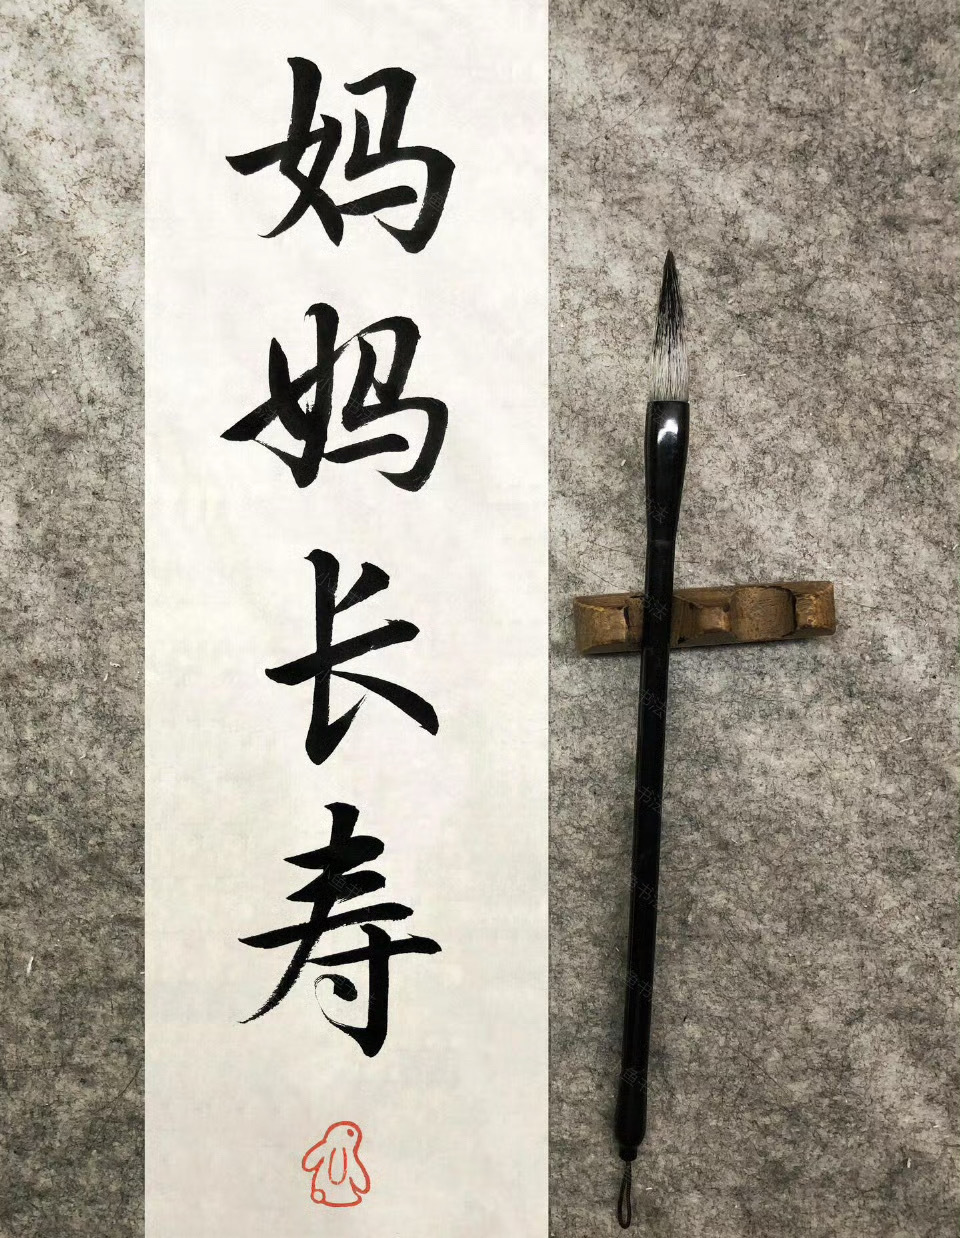 妈妈长寿